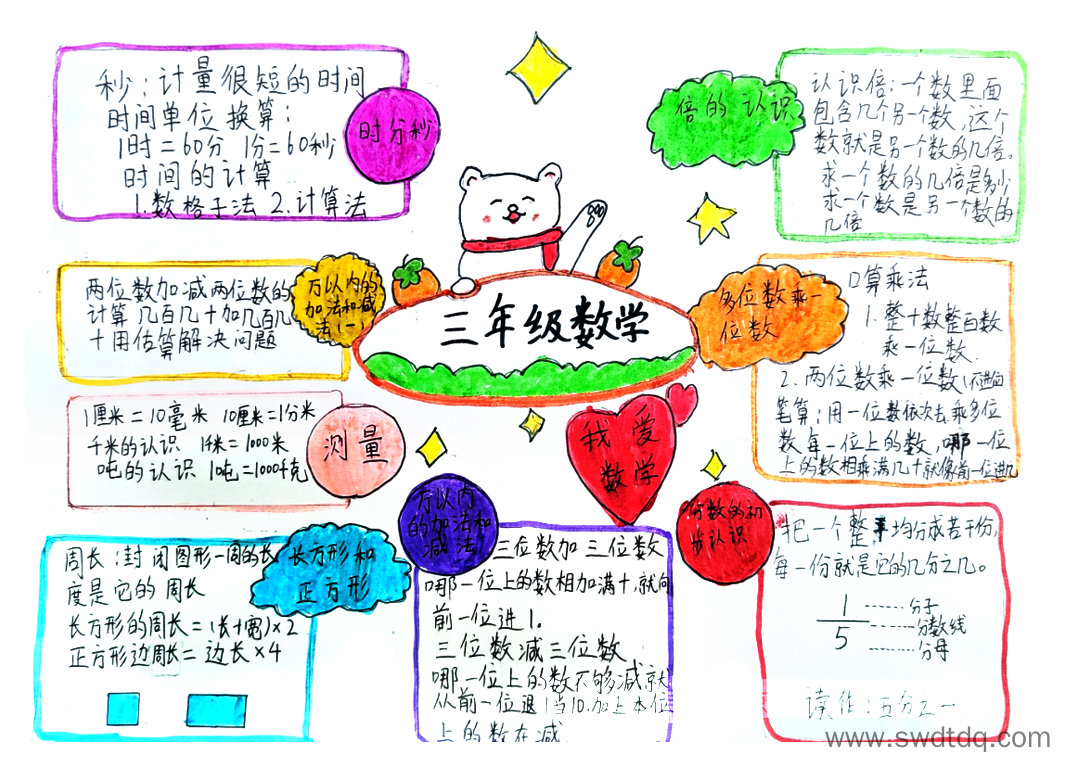 三年级数学
我爱
数学
时分秒
秒：计量很短的时间
时间单位换算：
1时=60分 1分=60秒
时间的计算
1.数格子法 2.计算法
万以内的
加法和减
法(一)
两位数加减两位数的
计算几百几十加几百几
十用估算解决问题
测量
1厘米=10毫米 10厘米=1分米
千米的认识 1千米=1000米
吨的认识 1吨=1000千克
长方形和
正方形
周长：封闭图形一周的长
度是它的周长
长方形的周长=(长+宽)×2
正方形边周长=边长×4
万以内
的加法和
减法
三位数加三位数
哪一位上的数相加满十，就向
前一位进1.
三位数减三位数
哪一位上的数不够减就
从前一位退1当10.加上本位
上的数在减
倍的认识
认识倍：一个数里面
包含几个另一个数，这个
数就是另一个数的几倍。
求一个数的几倍是多少
求一个数是另一个数的
几倍.
多位数乘一
位数
口算乘法
1.整十数整百数
乘一位数.
2.两位数乘一位数(不进位)
笔算：用一位数依次去乘多位
数每一位上的数，哪一位
上的数相乘满几十就像前一位进几
分数的初
步认识
把一个整平均分成若干份，
每一份就是它的几分之几。
1 ------分子
------分数线
5 ------分母
读作：五分之一
www.swdtdq.com